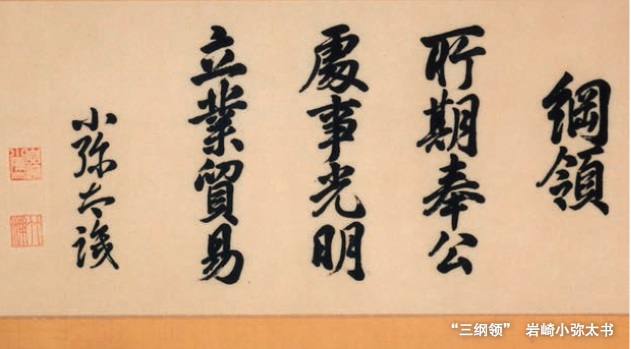 綱領
所期奉公
處事光明
立業貿易
小弥太識
“三纲领” 岩崎小弥太书